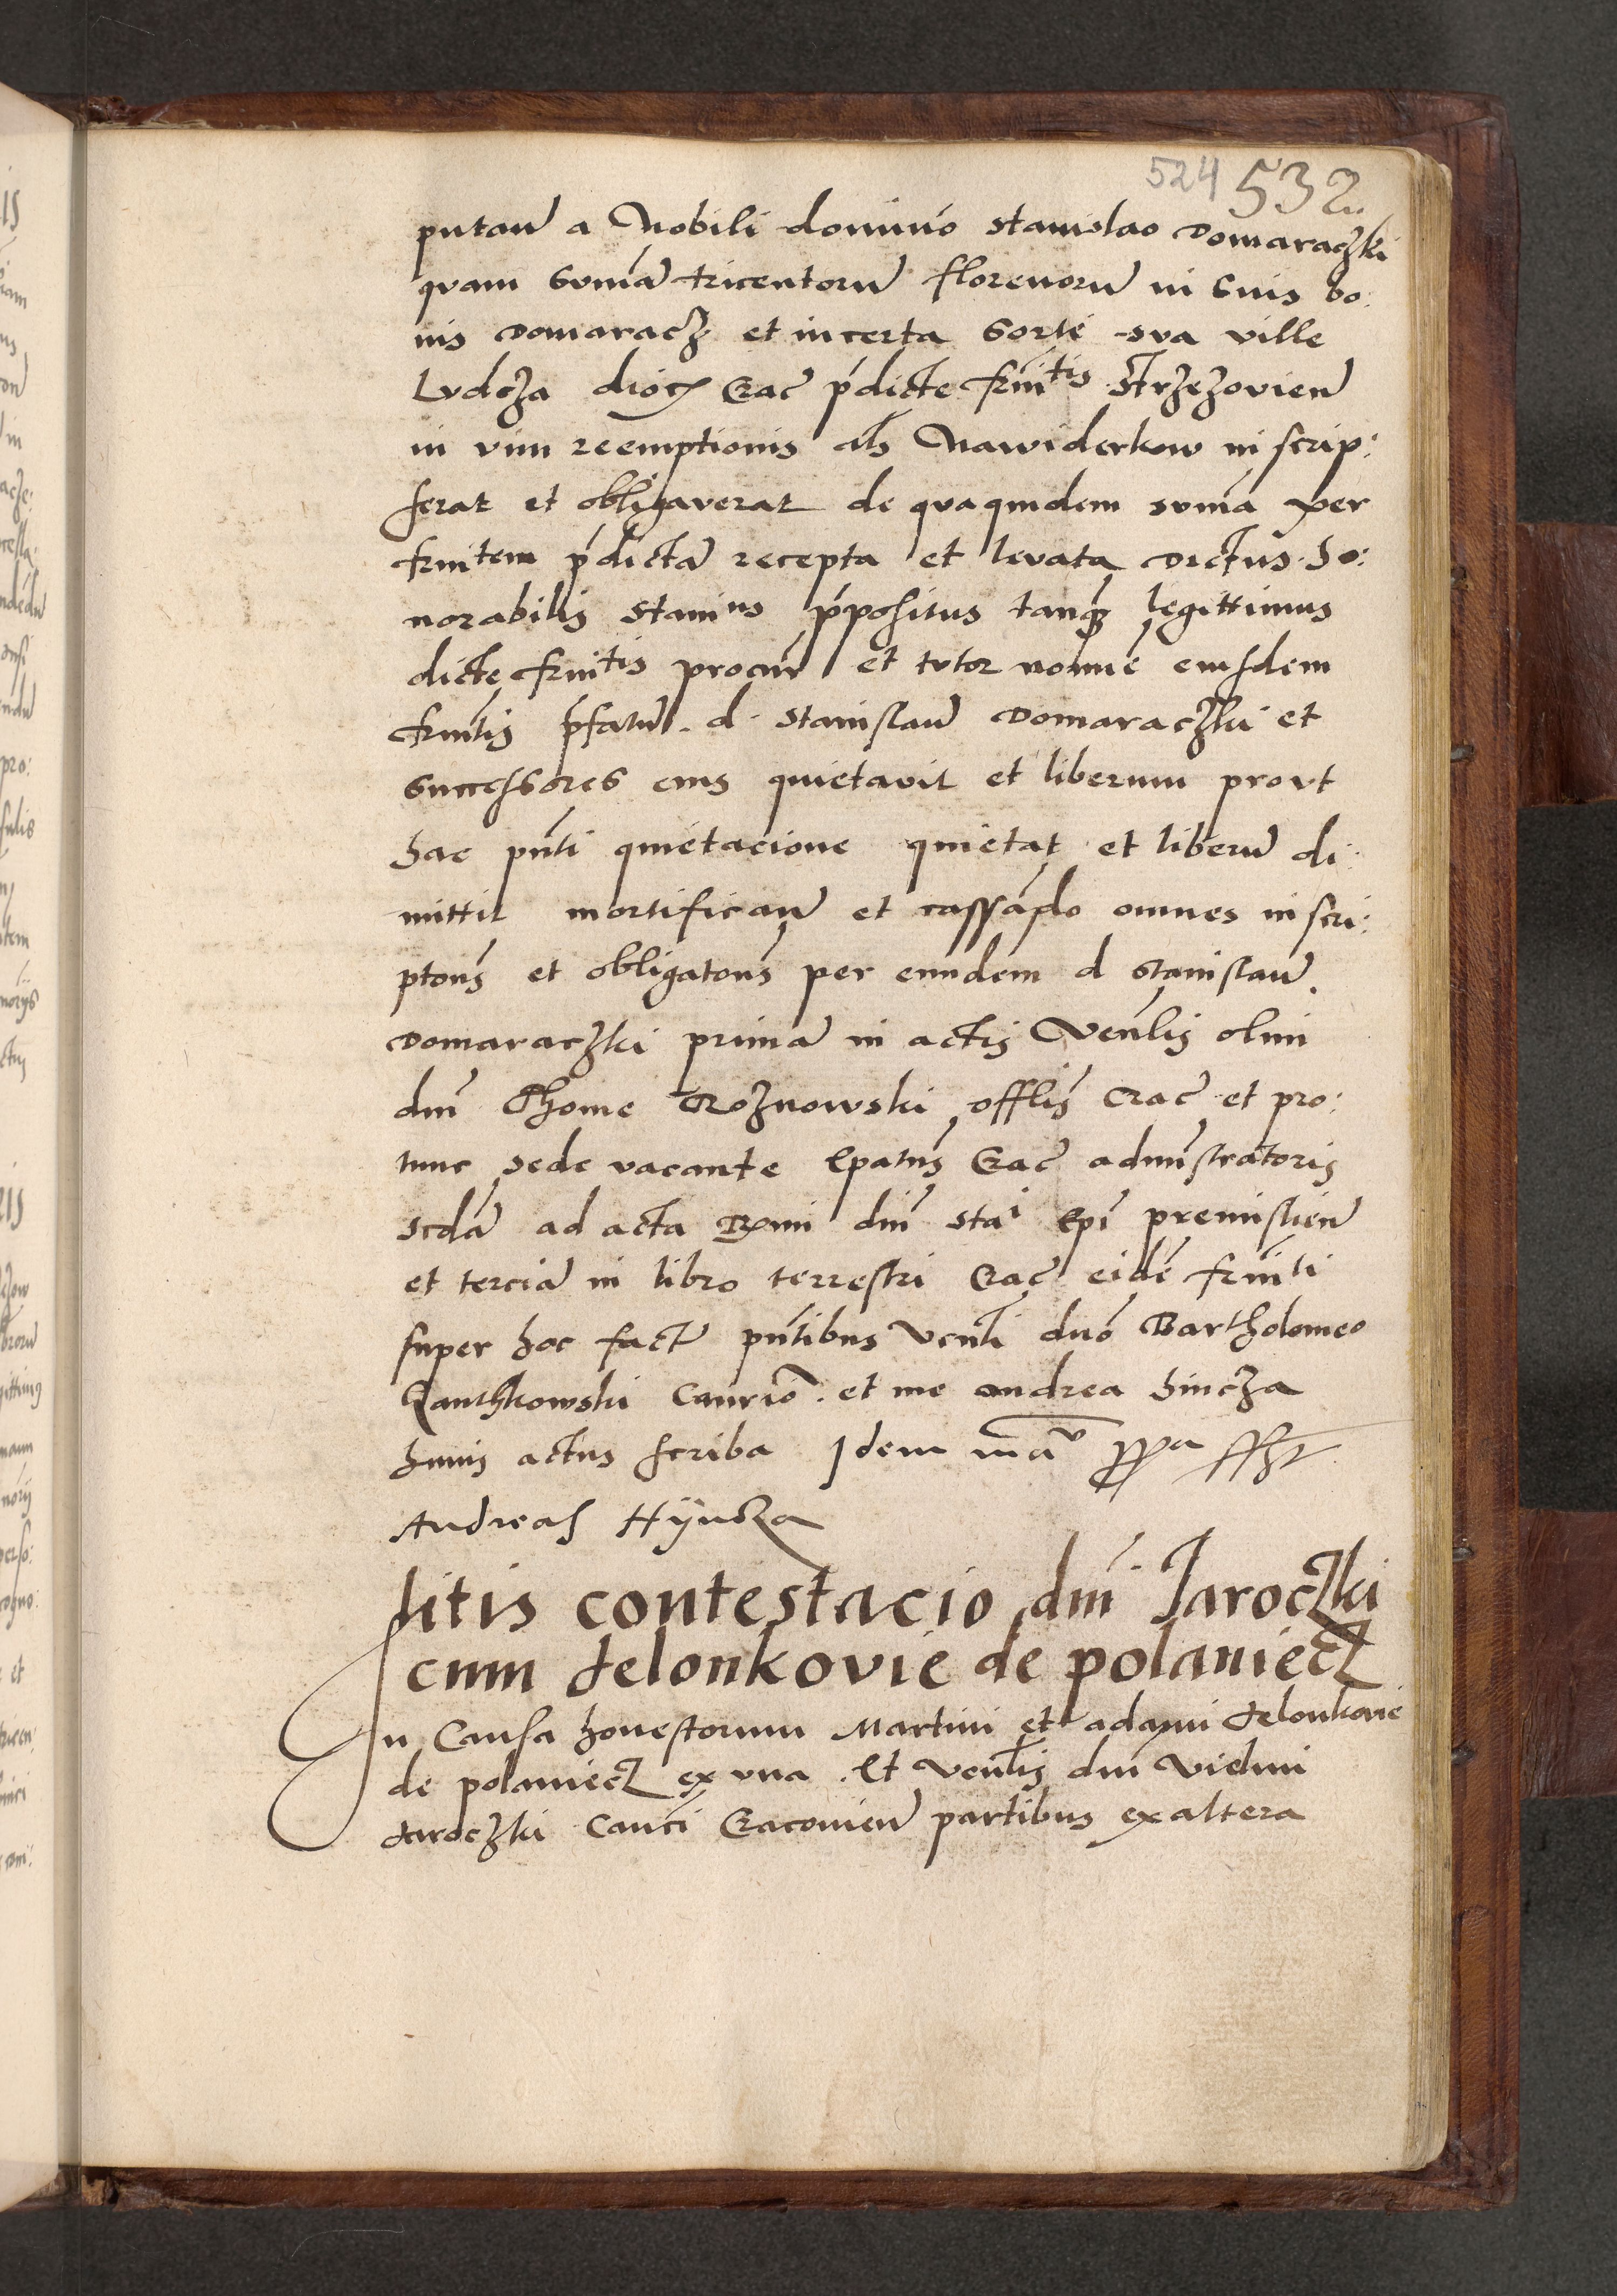 524 532
putan̄ a Nobili domino Stanislao Domaraczki
quam Sum̄a tricentorū florenorū in Suis bo:
nis Domaracz et in certa Sorte sua ville
Ludcza dioc̄ Crac̄ p̄dicte frn̄itatis Strzezovien̄
in vim reemptionis al̄s Nawiderkow in scrip:
serat et obligaverat de quaquidem sum̄a per
frnitem p̄dictā recepta et levata dictus ho:
norabilis Stanius p̄positus tanq̄ legittimus
dicte frnitis procur̄ et tutor nomīe eiusdem
frn̄tis p̄fatū d. Stanislaū Domaraczki et
Successores eius quietavit et liberum prout
hac pn̄ti quietacione quietat et liberū di:
mittit mortifican̄ et cassādo omnes in scri:
ptōns et obligatōns per eundem d Stanislaū
Domaraczki primā in actis Ven̄lis olim
dnī Thome Roznowski offlīs Crac̄ et pro:
tunc sede vacante Ep̄atus Crac̄ admīstratoris
scdā ad acta Rx̄mi dnī Stai Epī premislien̄
et terciā in libro terrestri Crac̄ eidē frnīti
super hoc factā pn̄tibus Vēnli dno Bartholomeo
Ganthkowski Canrīo et me andrea hincza
huius actus scriba Idem mā ppa sszt
Andreas Hÿncza
litis contestacio dnī Jaroczki
cum Jelonkovie de polaniecz
In Causa honestorum Martini et adami Jelonkovie
de polaniecz ex una Et Ven̄lis dnī Vielmi
Jaroczki Canci Cracovien̄ partibus ex altera